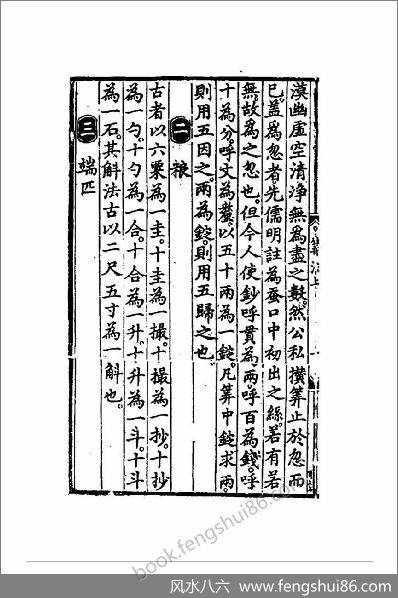 漠幽虛空清淨無爲盡之數然公私撗筭止於忽而
已蓋爲忽者先儒明註為蚕口中初出之絲若有若
無故爲之忽也但今人使鈔呼貫為兩呼百為錢呼
十為分呼文為釐以五十兩為一錠凡筭中錠求兩
則用五因之兩為錠則用五歸之也
二 粮
古者以六粟為一圭十圭為一撮十撮為一抄十抄
為一勺十勺為一合十合為一升十升為一斗十斗
為一石其斛法古以二尺五寸為一斛也
三 端匹
筭法上
一
book.fengshui86.com
风水八六 www.fengshui86.com